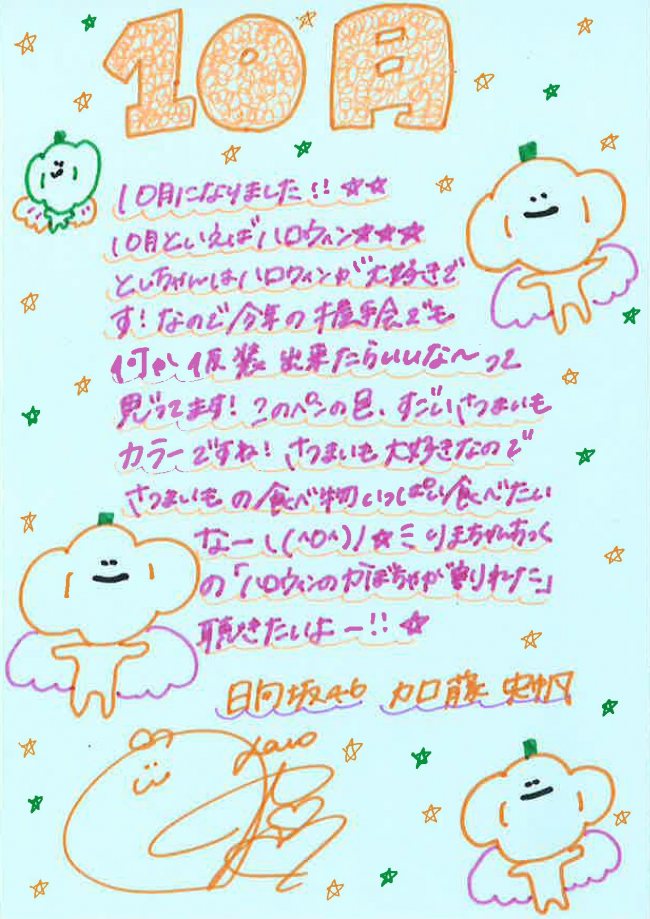 10月
10月になりました!!☆☆
10月といえばハロウィン☆☆☆
としちゃんはハロウィンが大好きで
す!なので今年の握手会でも
何か仮装出来たらいいな〜って
思ってます!このペンの色、すごいさつまいも
カラーですね!さつまいも大好きなので
さつまいもの食べ物いっぱい食べたい
なーヽ(^o^)丿☆ミりまちゃんちっく
の「ハロウィンのかぼちゃが割れた」
聴きたいよー!!☆
日向坂46 加藤史帆